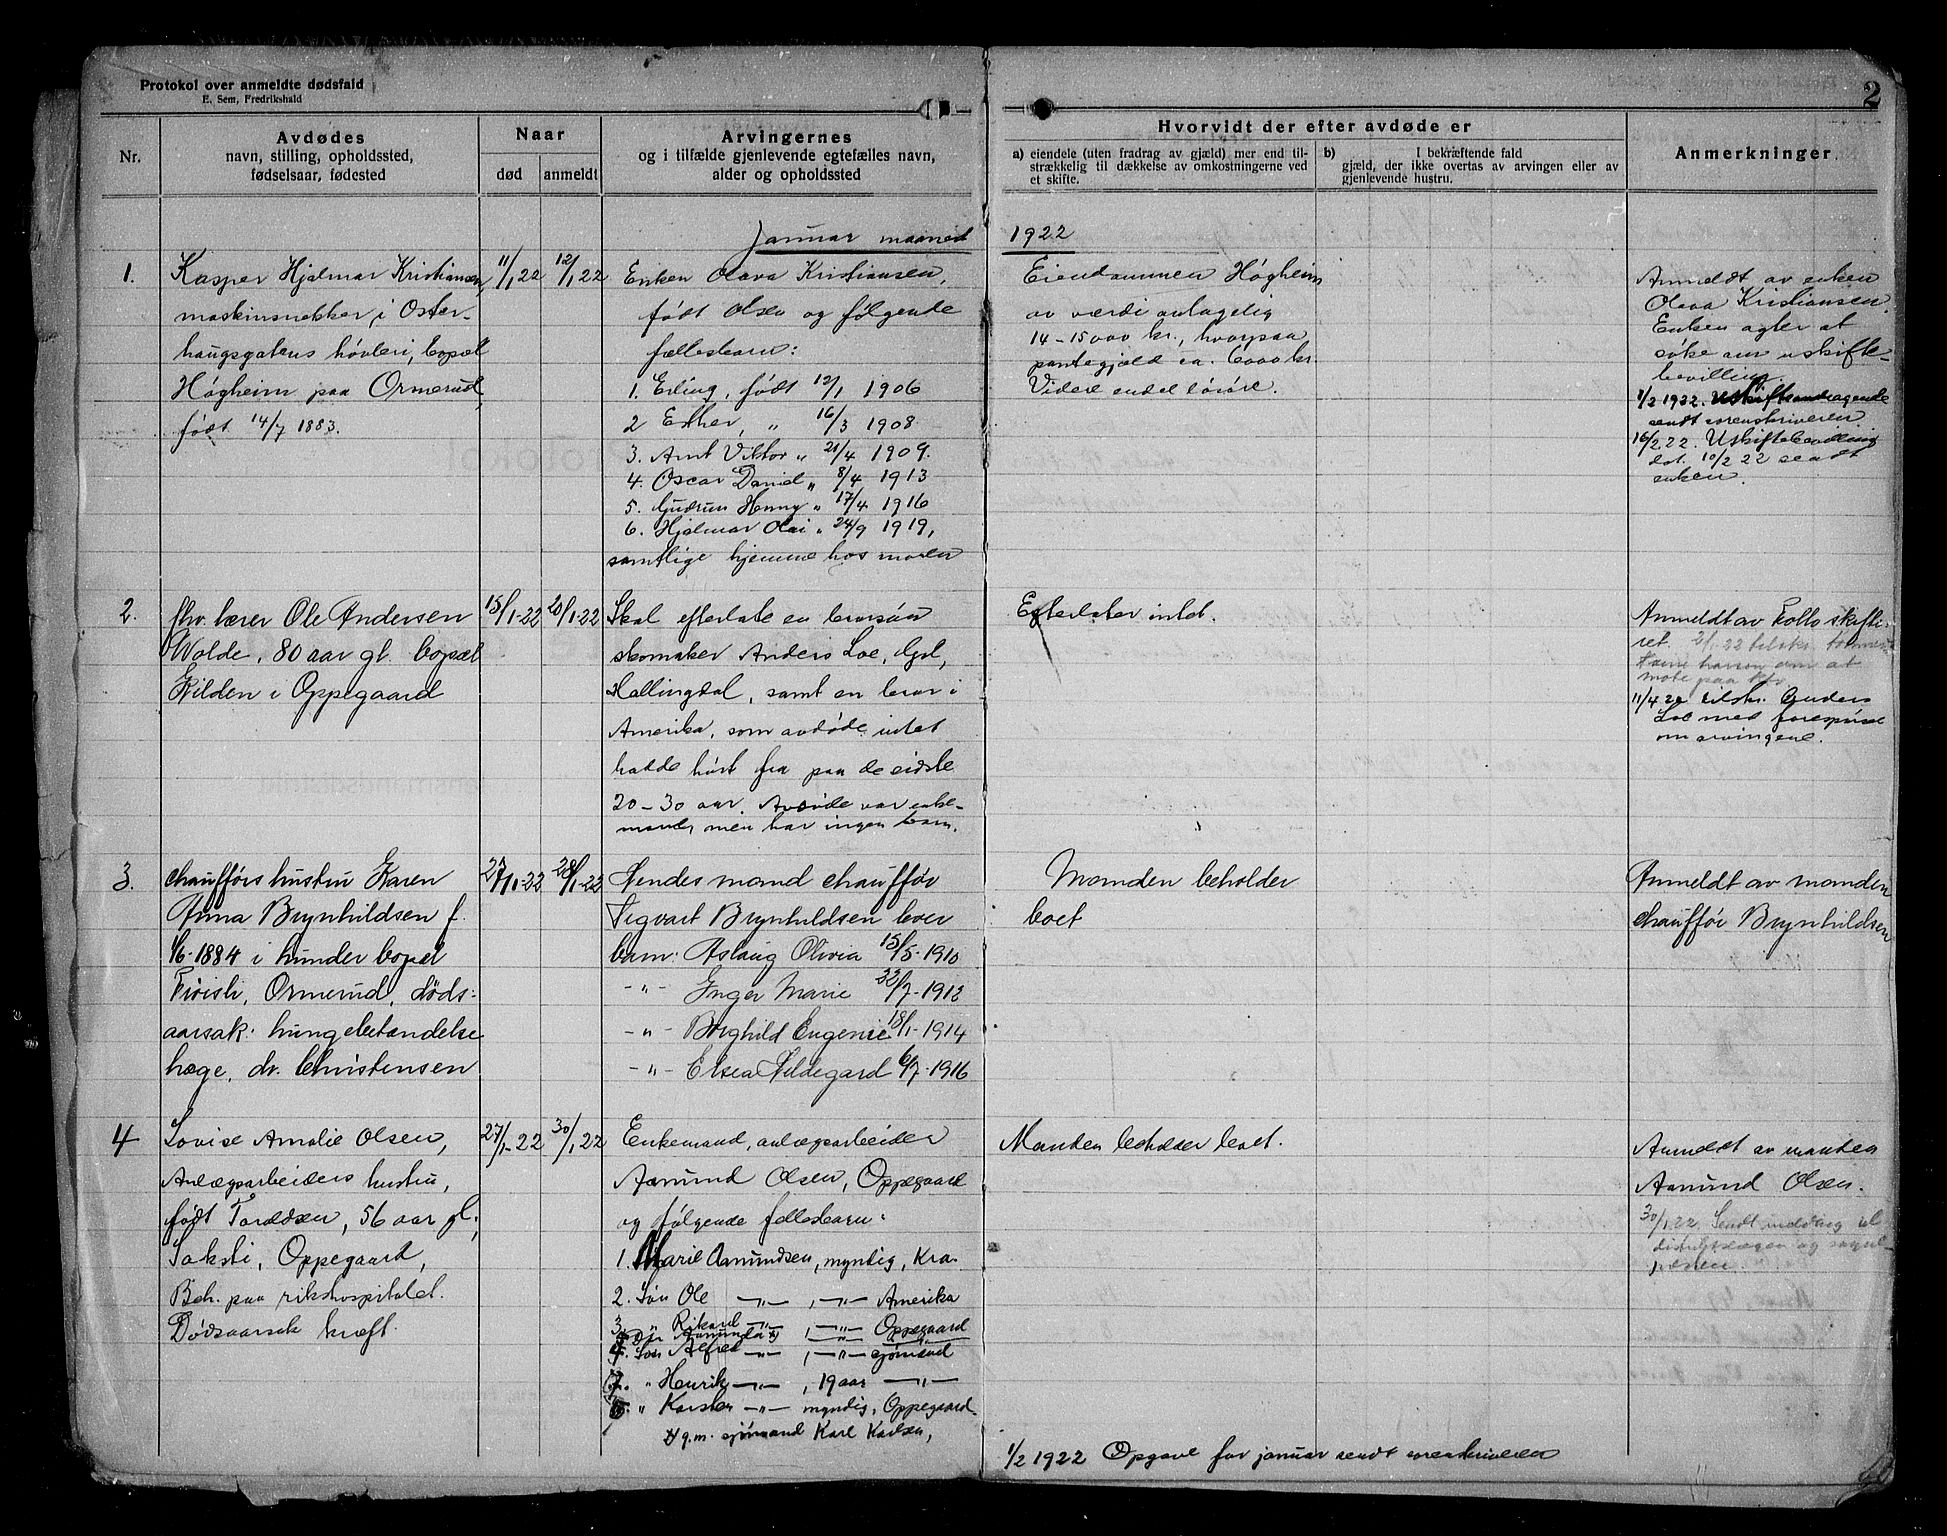 Protokol over anmeldte dødsfald
E. Sem, Fredrikshald
2
Nr.
Avdødes
navn, stilling, opholdssted,
fødselsaar, fødested
Naar
død
anmeldt
Arvingernes
og i tilfælde gjenlevende egtefælles navn,
alder og opholdssted
Hvorvidt der efter avdøde er
a) eiendele (uten fradrag av gjæld) mer end til-
strækkelig til dækkelse av omkostningerne ved
et skifte.
b) I bekræftende fald
gjæld, der ikke overtas av arvingen eller av
gjenlevende hustru.
Anmerkninger
Januar maaned
1922
1.
Kasper Hjalmar Kristiansen,
maskinsnekker, i Oster-
haugsgatens høvleri, bopæl
Høgheim paa Ormerud,
født 14/7 1883.
11/1 22
12/1 22
Enken Olava Kristiansen,
født Olsen og følgende
fællesbarn:
1. Erling, født 12/1 1906
2 Esther, " 16/3 1908
3. Arnt Viktor " 21/4 1909.
4. Oscar Daniel " 8/4 1913
5. Gudrun Henny " 17/4 1916
6. Hjalmar Olai " 24/9 1919,
samtlige hjemme hos moren
Eiendommen Høgheim
av værdi antagelig
14-15000 kr., hvorpaa
pantegjæld ca. 6000 kr.
Videre endel løsøre.
Anmeldt av enken
Olava Kristiansen.
Enken agter at
søke om uskifte-
bevilling.
1/2 1922. Uskifteandragende
sendt sorenskriveren.
16/2.22. Uskiftebevilling
dat. 10/2 22 sendt
enken.
2.
fhv. lærer Ole Andersen
Wolde, 80 aar gl. bopæl
Kilden i Oppegaard
15/1-22
20/1-22
Skal efterlate en brorsøn
skomaker Anders Loe, Gol,
Hallingdal, samt en bror i
Amerika, som avdøde intet
hadde hørt fra paa de sidste
20-30 aar. Avdøde var enke-
mand, men har ingen barn.
Efterlater intet.
Anmeldt av Follo skifte-
ret. 21/1 22 tilskr.
om at
møte paa
11/4 22 tilskr. Anders
Loe med forespørsel
om arvingene.
3.
chaufførs hustru Karen
Anna Brynhildsen f.
1/6-1884 i bopæl
Ormerud, døds-
aarsak: lungebetændelse
læge, dr. Christensen
27/1-22
28/1-22
Hendes mand chauffør
Sigvart Brynhildsen boer
barn: Aslaug Olivia 15/5-1910
-"- Inger Marie /7-1912
-"- Borghild Eugenie 18/1-1914
-"- Elsea Hildegard 6/7-1916
Manden beholder
boet
Anmeldt av manden
chauffør Brynhildsen
4
Lovise Amalie Olsen,
Anlægsarbeiders hustru,
født Tordsen, 56 aar gl.,
Oppegaard,
Beh. paa rikshospitalet.
Dødsaarsak kræft.
27/1-22
30/1 22
Enkemand, anlægsarbeider
Aamund Olsen, Oppegaard
og følgende fellesbarn:
1. Marie Aamundsen, myndig, Kra.
2. Søn Ole -"- , -"- Amerika
3. " Rikard -"- , -"- Oppegaard
Aamunda x) , -"-
Søn Alfred -"- , -"- sjømand
" Henrik -"- , 19 aar -"-
" Karsten -"- myndig, Oppegaard.
x) g.m. sjømand Karl Karlsen,
Manden beholder boet.
Anmeldt av manden
Aamund Olsen.
30/1.22. Sendt til
distriktslægen og
1/2 1922 Opgave for januar sendt sorenskriveren